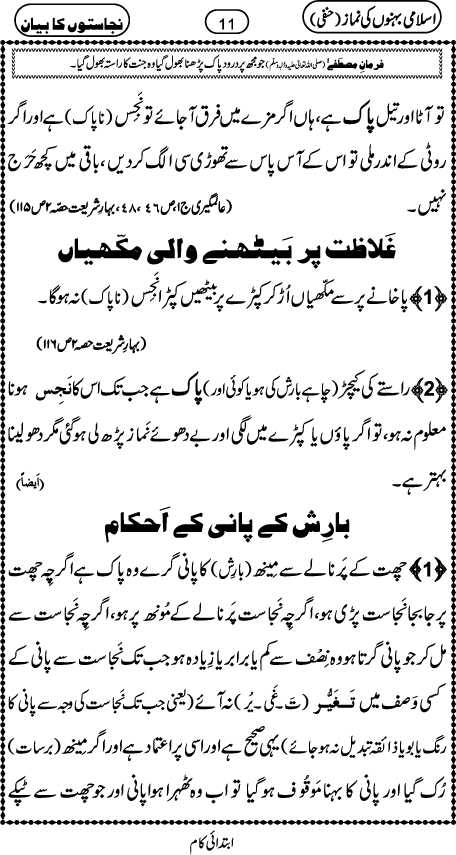 اسلامی بہنوں کی نماز (حنفی)
11
نجاستوں کا بیان
فرمانِ مصطفےٰ (صلی اللہ تعالیٰ علیہ والہ وسلم) جو مجھ پر درود پاک پڑھنا بھول گیا وہ جنت کا راستہ بھول گیا۔
تو آٹا اور تیل پاک ہے، ہاں اگر مزے میں فرق آجائے تو نَجِس (ناپاک) ہے اور اگر
روٹی کے اندر ملی تو اس کے آس پاس سے تھوڑی سی الگ کردیں، باقی میں کچھ حَرَج
نہیں۔ (عالمگیری ج۱، ص ۴۶، ۴۸، بہارِ شریعت حصّہ ۲ ص ۱۱۵)
غَلاظت پر بَیٹھنے والی مکّھیاں
﴿1﴾ پاخانے پر سے مکّھیاں اُڑ کر کپڑے پر بیٹھیں کپڑا نَجِس (ناپاک) نہ ہوگا۔
(بہارِ شریعت حصہ ۲ ص ۱۱۶)
﴿2﴾ راستے کی کیچڑ (چاہے بارِش کی ہو یا کوئی اور) پاک ہے جب تک اس کا نَجِس ہونا
معلوم نہ ہو، تو اگر پاؤں یا کپڑے میں لگی اور بے دھوئے نَماز پڑھ لی ہوگئی مگر دھولینا
بہتر ہے۔ (اَیضاً)
بارِش کے پانی کے اَحکام
﴿1﴾ چھت کے پَرنالے سے مِینھ (بارِش) کا پانی گرے وہ پاک ہے اگرچِہ چھت
پر جابجا نَجاست پڑی ہو، اگرچِہ نَجاست پَرنالے کے مُونھ پر ہو، اگرچِہ نَجاست سے
مل کر جو پانی گرتا ہو وہ نِصْف سے کم یا برابر یا زِیادہ ہو جب تک نَجاست سے پانی کے
کسی وَصف میں تَغَیُّر (تَ۔غَی۔یُر) نہ آئے (یعنی جب تک نَجاست کی وجہ سے پانی کا
رنگ یا بو یا ذائقہ تبدیل نہ ہوجائے) یہی صحیح ہے اور اسی پر اعتماد ہے اور اگر مِینھ (برسات)
رُک گیا اور پانی کا بہنا مَوقُوف ہوگیا تو اب وہ ٹھہرا ہوا پانی اور جو چھت سے ٹپکے
ابتدائی کام